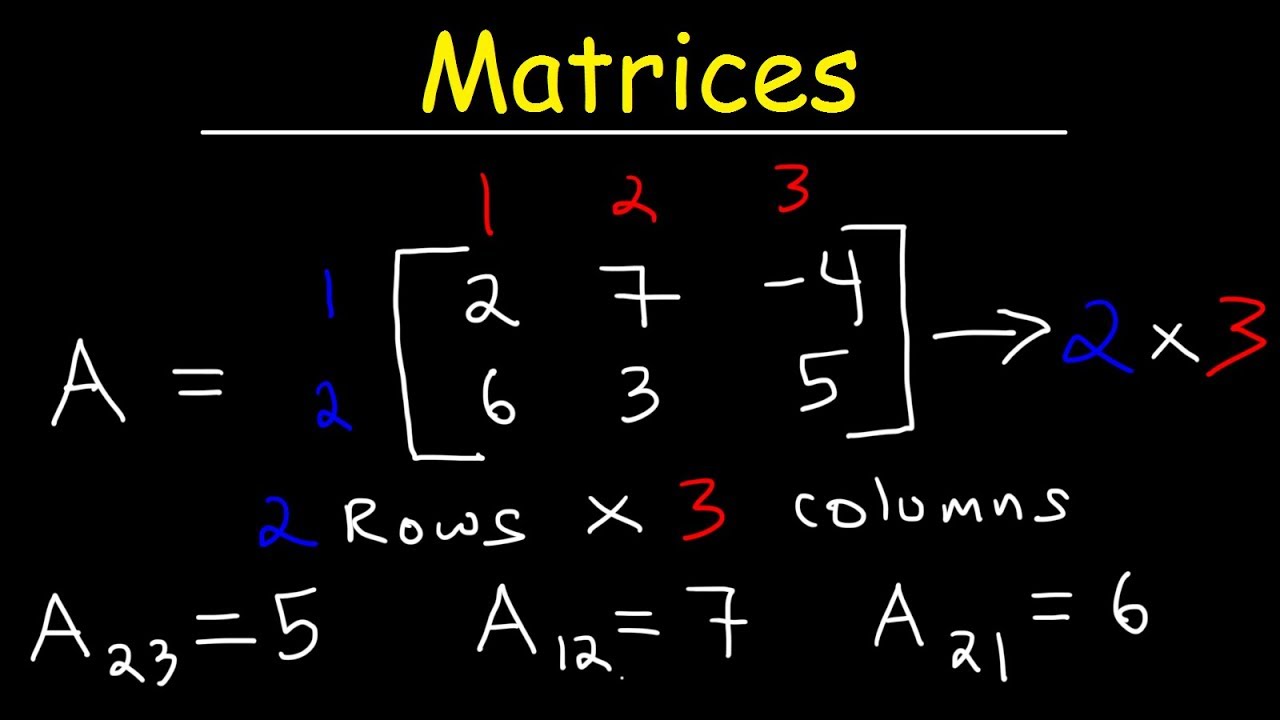 Matrices
1 2 3
1 2 7 -4
A = 2 6 3 5 → 2 × 3
2 Rows × 3 columns
A23 = 5 A12 = 7 A21 = 6